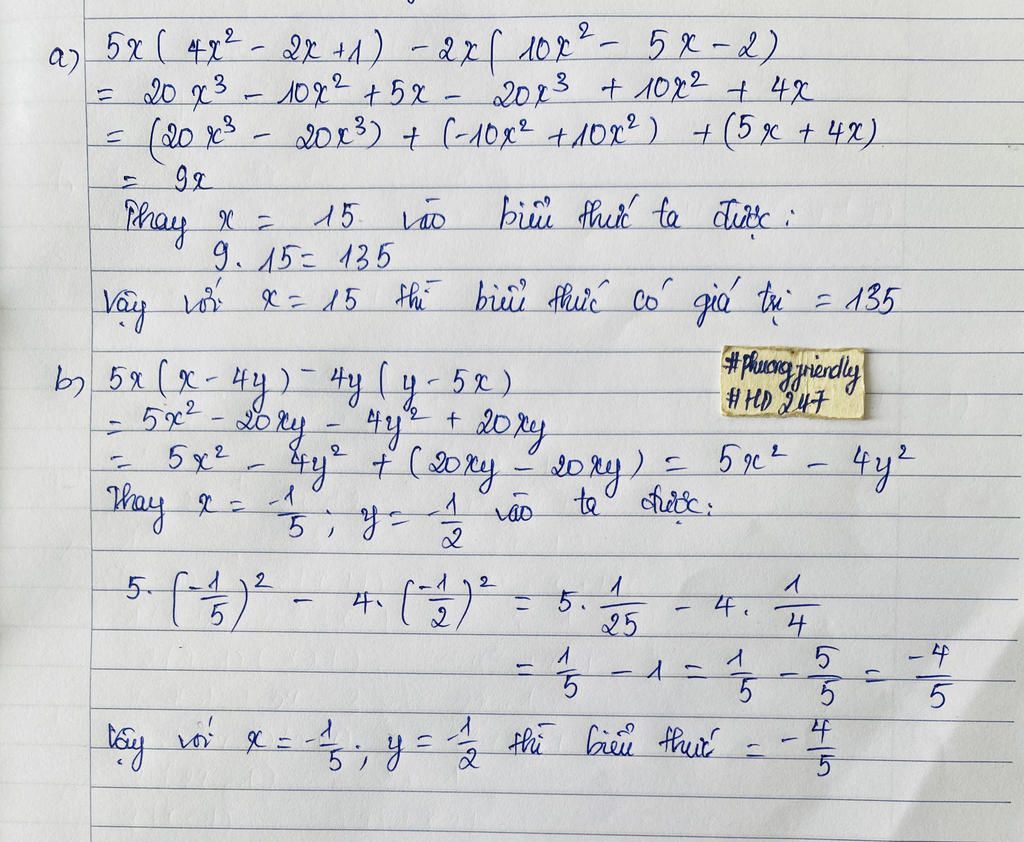 a) 5x( 4x² - 2x +1) - 2x( 10x² - 5x - 2)
= 20x³ - 10x² + 5x - 20x³ + 10x² + 4x
= (20x³ - 20x³) + (-10x² + 10x²) + (5x + 4x)
= 9x
Thay x = 15 vào biểu thức ta được:
9. 15 = 135
Vậy với x = 15 thì biểu thức có giá trị = 135
b) 5x(x - 4y) - 4y(y - 5x)
#phuongfriendly
#HD 247
= 5x² - 20xy - 4y² + 20xy
= 5x² - 4y² + (20xy - 20xy) = 5x² - 4y²
Thay x = -1/5 ; y = -1/2 vào ta được:
5. (-1/5)² - 4. (-1/2)² = 5. 1/25 - 4. 1/4
= 1/5 - 1 = 1/5 - 5/5 = -4/5
Vậy với x = -1/5 ; y = -1/2 thì biểu thức = -4/5